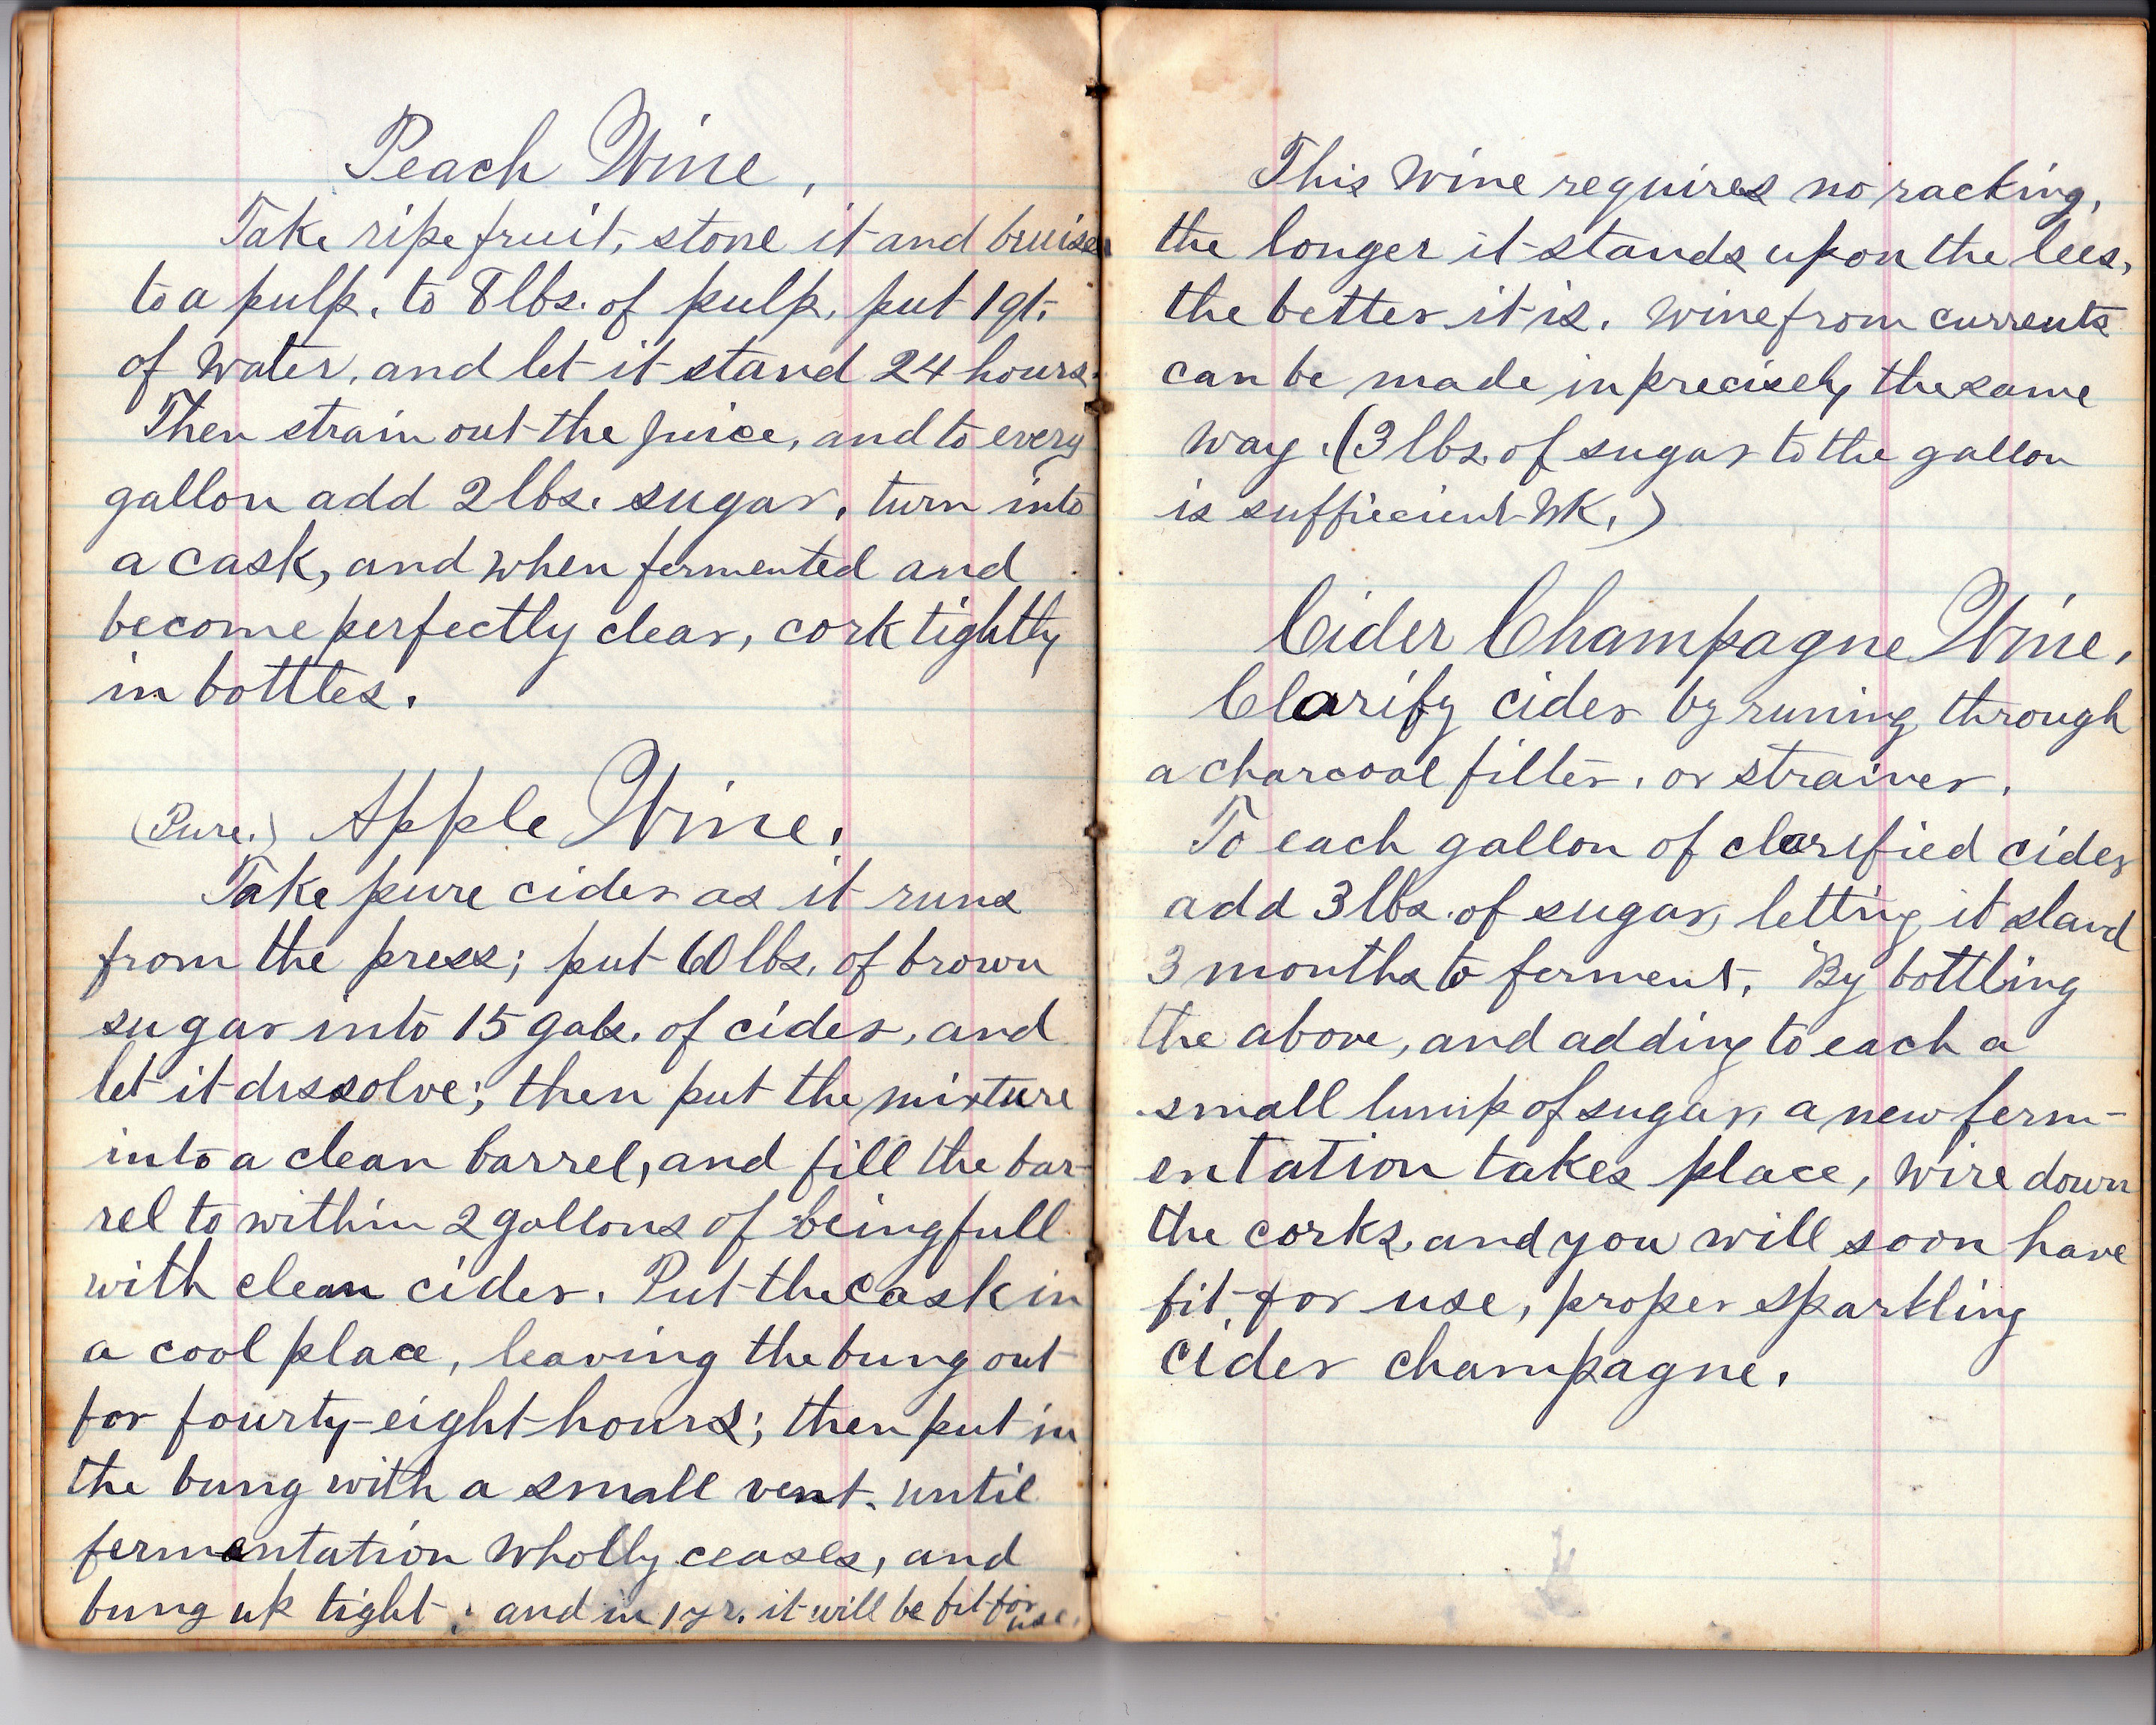 Peach Wine,
Take ripe fruit, stone it and bruise
to a pulp. to 8 lbs. of pulp, put 1 qt.
of water, and let it stand 24 hours.
Then strain out the juice, and to every
gallon add 2 lbs. sugar, turn into
a cask, and when fermented and
become perfectly clear, cork tightly
in botttles.
(Pure.) Apple Wine.
Take pure cider as it runs
from the press; put 60 lbs. of brown
sugar into 15 gals. of cider, and
let it dissolve; then put the mixture
into a clean barrel, and fill the bar-
rel to within 2 gallons of being full
with clean cider. Put the cask in
a cool place, leaving the bung out
for fourty-eight hours; then put in
the bung with a small vent. until
fermentation wholly ceases, and
bung up tight; and in 1 yr. it will be fit for
use.
This wine requires no racking,
the longer it stands upon the lees,
the better it is. Wine from currents
can be made in precisely the same
way. (3 lbs. of sugar to the gallon
is suffiecient WK.)
Cider Champagne Wine.
Clarify cider by runing through
a charcoal filter, or strainer.
To each gallon of clarified cider
add 3 lbs. of sugar, letting it stand
3 months to ferment. By bottling
the above, and adding to each a
small lump of sugar, a new ferm-
entation takes place, wire down
the corks, and you will soon have
fit for use, proper sparkling
cider champagne.